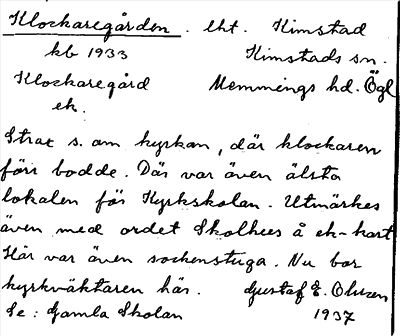 Klockaregården. lht. Kimstad
kb 1933 Kimstads sn.
Klockaregård Memmings hd. Ögl
ek.
Strax s. om kyrkan, där klockaren
förr bodde. Där var även älsta
lokalen för Kyrkskolan. Utmärkes
även med ordet Skolhus å ek-kart
Här var även sockenstuga. Nu bor
kyrkväktaren här. Gustaf E. Olsson
Se: Gamla Skolan 1937